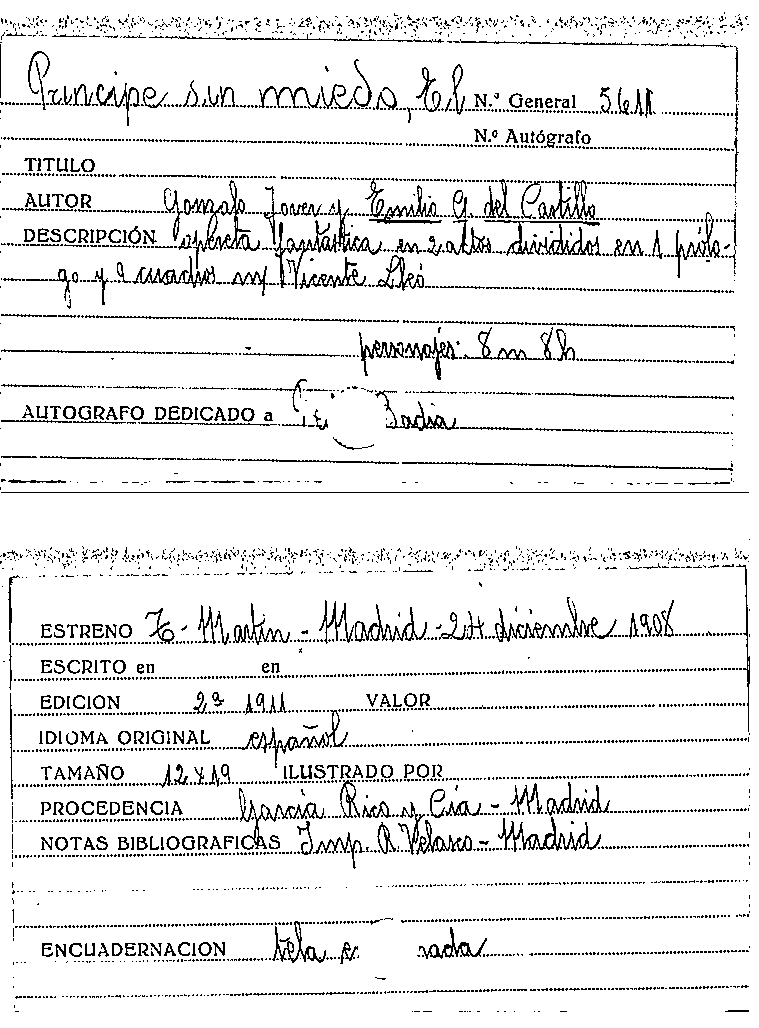 Principe sin miedo, El N.º General 5611
N.º Autógrafo
TITULO
AUTOR Gonzalo Jover y Emilio G. del Castillo
DESCRIPCIÓN opereta fantástica en 2 actos divididos en 1 prólo-
go y 9 cuadros m/ Vicente Lleó
personajes: 8 m 8 h
AUTOGRAFO DEDICADO a Badía
ESTRENO T- Martin - Madrid - 24 diciembre 1908
ESCRITO en en
EDICION 2ª 1911 VALOR
IDIOMA ORIGINAL español
TAMAÑO 12 x 19 ILUSTRADO POR
PROCEDENCIA García Rico y Cía - Madrid
NOTAS BIBLIOGRAFICAS Imp. R. Velasco - Madrid
ENCUADERNACION tela